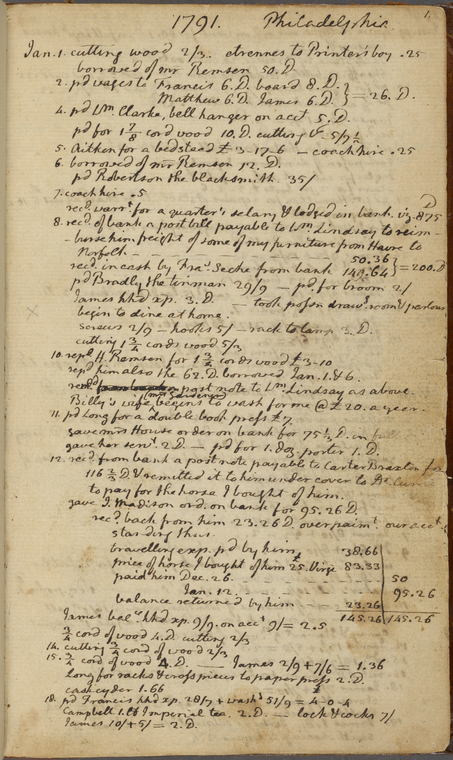 1791. Philadelphia 1.
Jan. 1. cutting wood 2/3. etrennes to Printer's boy .25
borrowed of mr Remsen 50. D.
2. pd wages to Francis 6. D. board 8. D.
Matthew 6. D. James 6. D. } = 26. D.
4. pd Wm. Clarke, bell hanger on acct 5. D.
pd for 1 7/8 cord wood 10. D. cutting
5. Aitken for a bedstead £3-17-6 — coach hire .25
6. borrowed of mr Remsen 12. D.
pd Robertson the blacksmith 35/
7. coach hire .5
recd. warrt. for a quarter's salary & lodged in bank. viz. 875 D
8. recd. of bank a post bill payable to Wm. Lindsay to reim-
-burse him freight of some of my furniture from Havre to
Norfolk - - - 50.36
recd. in cash by Fras. Seche from bank 149.64 } = 200. D
pd Bradly the tinman 29/9 — pd. for broom 2/
James hhd xp. 3. D. — took possn. drawg. room & parlour
begin to dine at home.
screws 2/9 - hooks 5/ - rack to lamp 3. D.
cutting 1 3/4 cords wood 5/3
10. repd. H. Remsen for 1 3/4 cords wood £3-10
repd him also the 62. D. borrowed Jan. 1. & 6.
recd post note to Wm. Lindsay as above.
Billy's wife (mrs Gardiner) begins to wash for me @ £20. a year.
11. pd Long for a double book press £7.
gave mrs House order on bank for 75 1/3 D. in full
gave her servt. 2. D. — pd for 1. doz. porter 1. D.
12. recd. from bank a post note payable to Carter Braxton for
116 2/3 D. & remitted it to him under cover to
to pay for the horse I bought of him.
gave J. Madison ord. on bank for 95.26 D.
recd. back from him 23.26 D. overpaimt. our acct
standing thus
travelling exp. pd by him 38.66
price of horse I bought of him £25. Virge 83.33
paid him Dec. 26. - - - 50
Jan. 12. - - - 95.26
balance returned by him - 23.26
145.26 145.26
James bale. hhd xp. 9/9. on acct 9/ = 2.5
3/4 cord of wood 4. D. cutting 2/3
14. cutting 3/4 cord of wood 2/3
15. 3/4 cord of wood 4. D. — James 2/9 + 7/6 = 1.36
Long for racks & cross pieces to paper press 2. D.
cash cyder 1.66
18. pd Francis hhd xp. 28/9 + washg 51/9 = £4-0-4
Campbell 1. lb Imperial tea. 2. D. — lock & cocks 7/
James 10/ + 5/ = 2. D.